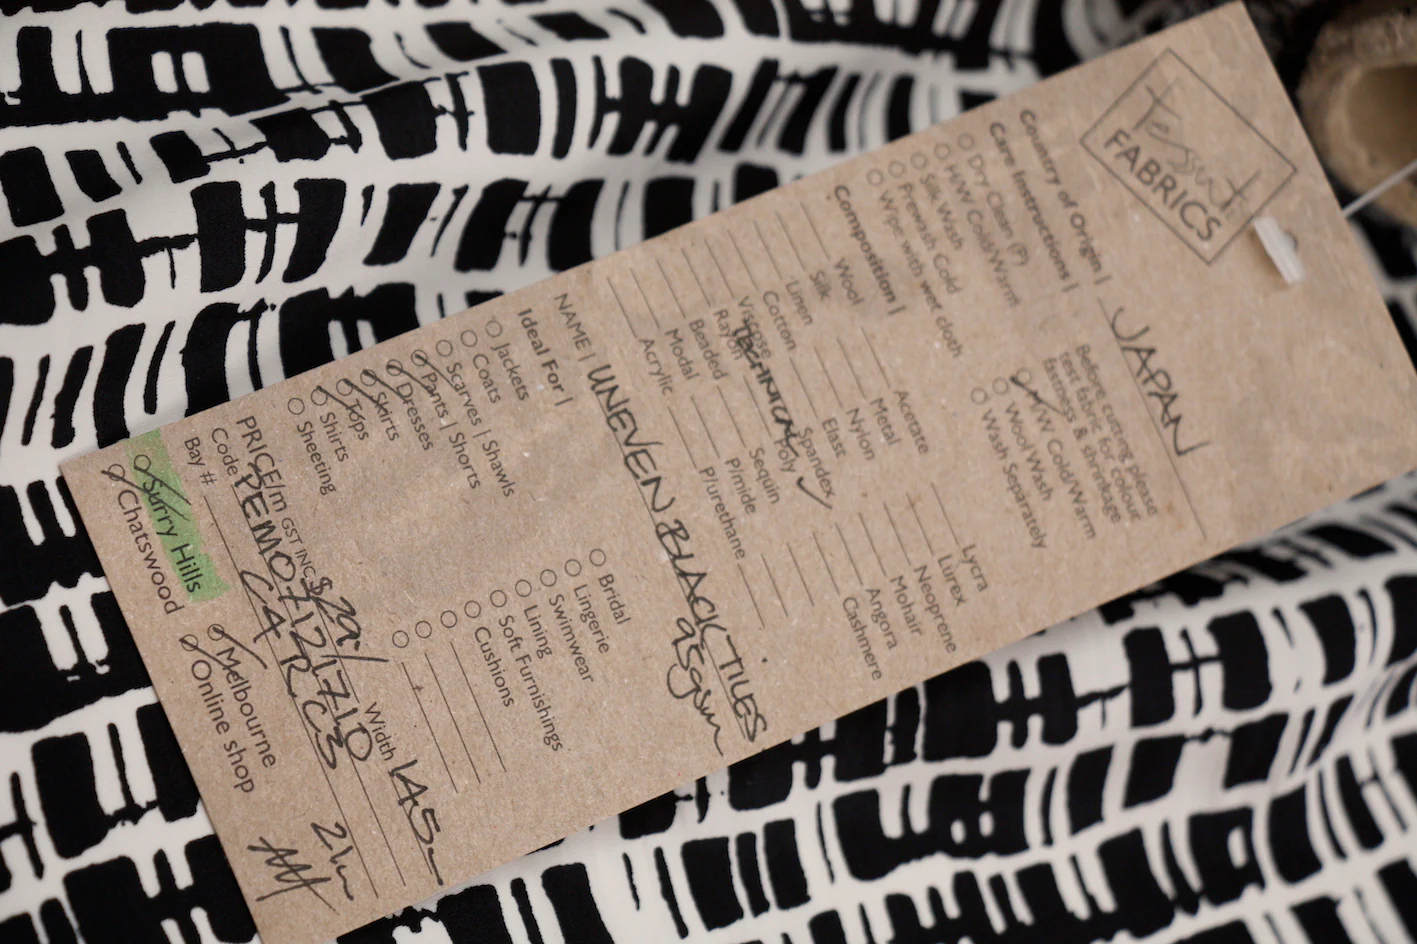 tessuti
FABRICS
Country of Origin | JAPAN
Care Instructions |
Dry Clean (P)
H/W Cold/Warm
Silk Wash
Prewash Cold
Wipe with wet cloth
Before cutting please
test fabric for colour
fastness & shrinkage
H/W Cold/Warm
Wool Wash
Wash Separately
Composition |
Wool
Silk
Linen
Cotton
Viscose
Rayon
Beaded
Modal
Acrylic
TECHNICAL
Acetate
Metal
Nylon
Elast
Spandex ✓
Poly
Sequin
P/imide
P/urethane
Lycra
Lurex
Neoprene
Mohair
Angora
Cashmere
NAME | UNEVEN BLACK TILES
95gsm
Ideal For |
Jackets
Coats
Scarves | Shawls
Pants | Shorts
Dresses
Skirts
Tops
Shirts
Sheeting
Bridal
Lingerie
Swimwear
Lining
Soft Furnishings
Cushions
PRICE/m GST INC $29/ Width 145
Code
Bay # C4 RC3 21m
Surry Hills
Chatswood
Melbourne
Online shop